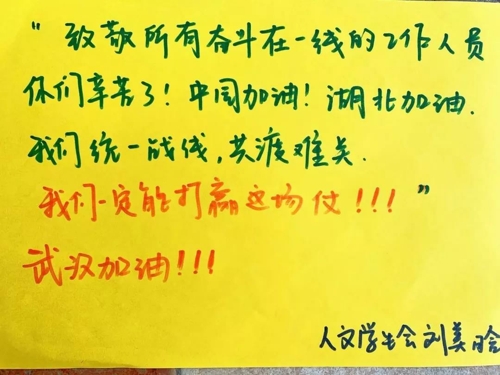 “致敬所有奋斗在一线的工作人员
你们辛苦了！中国加油！湖北加油.
我们统一战线,共渡难关.
我们一定能打赢这场仗!!!”
武汉加油!!!
人文学生会刘美晗